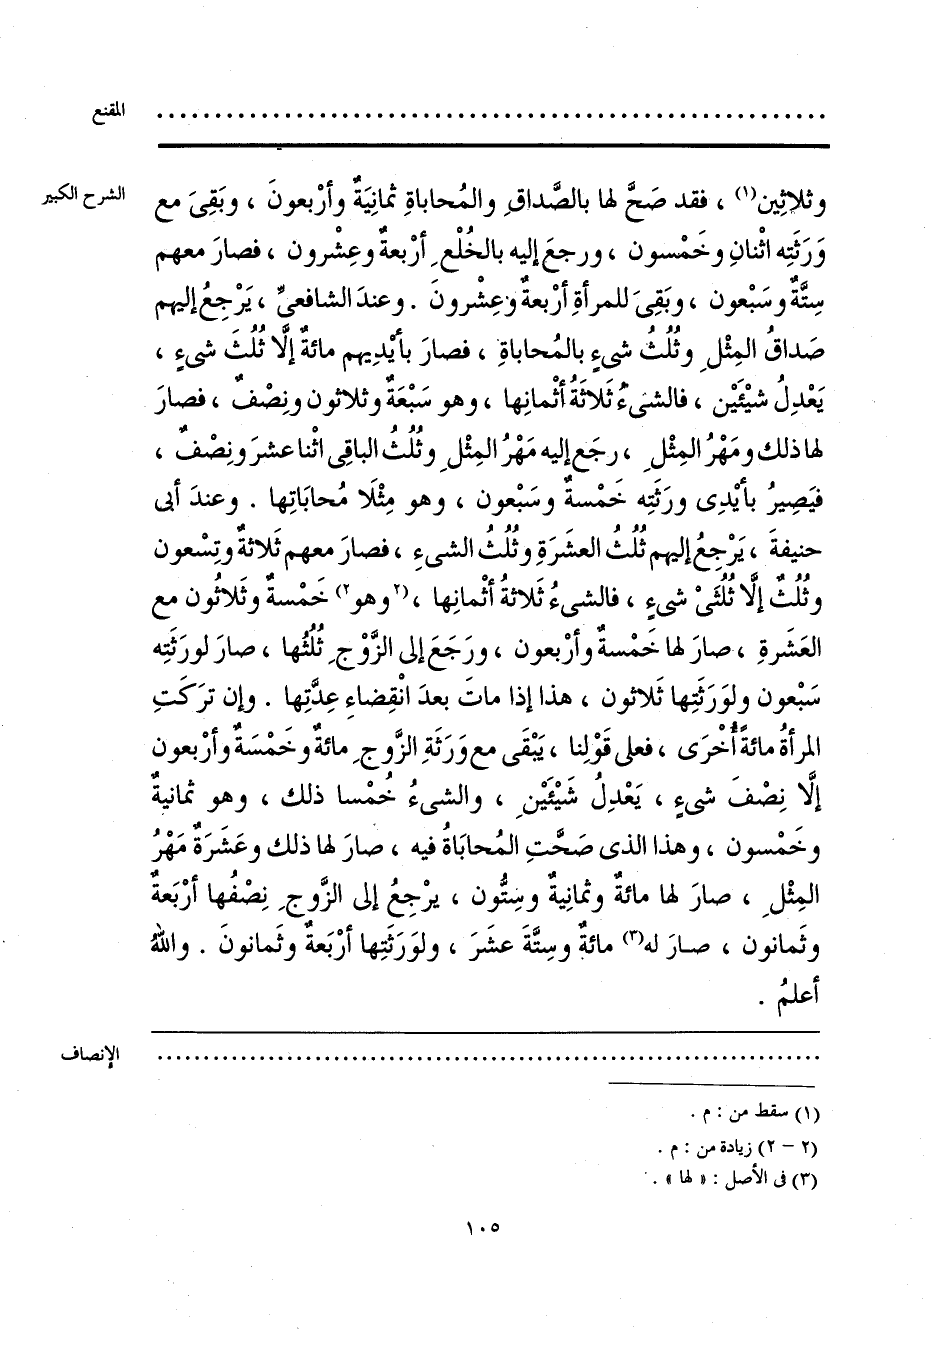 المقنع ........................................................
الشرح الكبير
وثلاثِين(١) ، فقد صَحَّ لها بالصَّداقِ والمُحاباةِ ثمانِيَةٌ وأرْبعونَ ، وبَقِىَ مع
وَرَثَتِه اثْنانِ وخَمْسون ، ورجعَ إليه بالخُلْعِ أرْبعةٌ وعِشْرون ، فصارَ معهم
سِتَّةٌ وسَبْعون ، وبَقِىَ للمرأةِ أرْبعةٌ وعِشْرونَ . وعندَ الشافعىِّ ، يَرْجِعُ إليهم
صَداقُ المِثْلِ وثُلُثُ شىءٍ بالمُحاباةِ ، فصارَ بأيْدِيهم مائةٌ إلَّا ثُلُثَ شىءٍ ،
يَعْدِلُ شيْئَيْن ، فالشىءُ ثَلاثَةُ أثْمانِها ، وهو سَبْعَةٌ وثلاثون ونِصْفٌ ، فصارَ
لها ذلك ومَهْرُ المِثْلِ ، رجَع إليه مَهْرُ المِثْلِ وثُلُثُ الباقِى اثْنا عشرَ ونِصْفٌ ،
فيَصِيرُ بأيْدِى ورَثَتِه خَمْسةٌ وسَبْعون ، وهو مِثْلَا مُحابَاتِها . وعندَ أبى
حنيفةَ ، يَرْجِعُ إليهم ثُلُثُ العشَرَةِ وثُلُثُ الشىءِ ، فصارَ معهم ثَلاثةٌ وتِسْعون
وثُلُثٌ إلَّا ثُلُثَىْ شىءٍ ، فالشىءُ ثَلاثةُ أثْمانِها ، (٢وهو٢) خَمْسةٌ وثَلاثُون مع
العَشَرةِ ، صارَ لها خَمْسةٌ وأرْبعون ، ورَجَعَ إلى الزَّوْجِ ثُلُثُها ، صارَ لورَثَتِه
سَبْعون ولوَرَثَتِها ثَلاثون ، هذا إذا ماتَ بعدَ انْقِضاءِ عِدَّتِها . وإن ترَكَتِ
المرأةُ مائةً أُخْرَى ، فعلى قَوْلِنا ، يَبْقَى مع وَرَثَةِ الزَّوجِ مائةٌ وخَمْسَةٌ وأرْبعون
إلَّا نِصْفَ شىءٍ ، يَعْدِلُ شَيْئَيْنِ ، والشىءُ خُمْسا ذلك ، وهو ثمانيةٌ
وخَمْسون ، وهذا الذى صَحَّتِ المُحابَاةُ فيه ، صارَ لها ذلك وعَشَرَةٌ مَهْرُ
المِثْلِ ، صارَ لها مائةٌ وثمانِيةٌ وسِتُّون ، يرْجِعُ إلى الزَّوجِ نِصْفُها أرْبَعةٌ
وثَمانون ، صارَ له(٣) مائةٌ وسِتَّةَ عشَرَ ، ولوَرَثَتِها أرْبَعةٌ وثَمانونَ . واللهُ
أعلمُ .
الإنصاف ........................................................
(١) سقط من : م .
(٢ - ٢) زيادة من : م .
(٣) فى الأصل : « لها » .
١٠٥